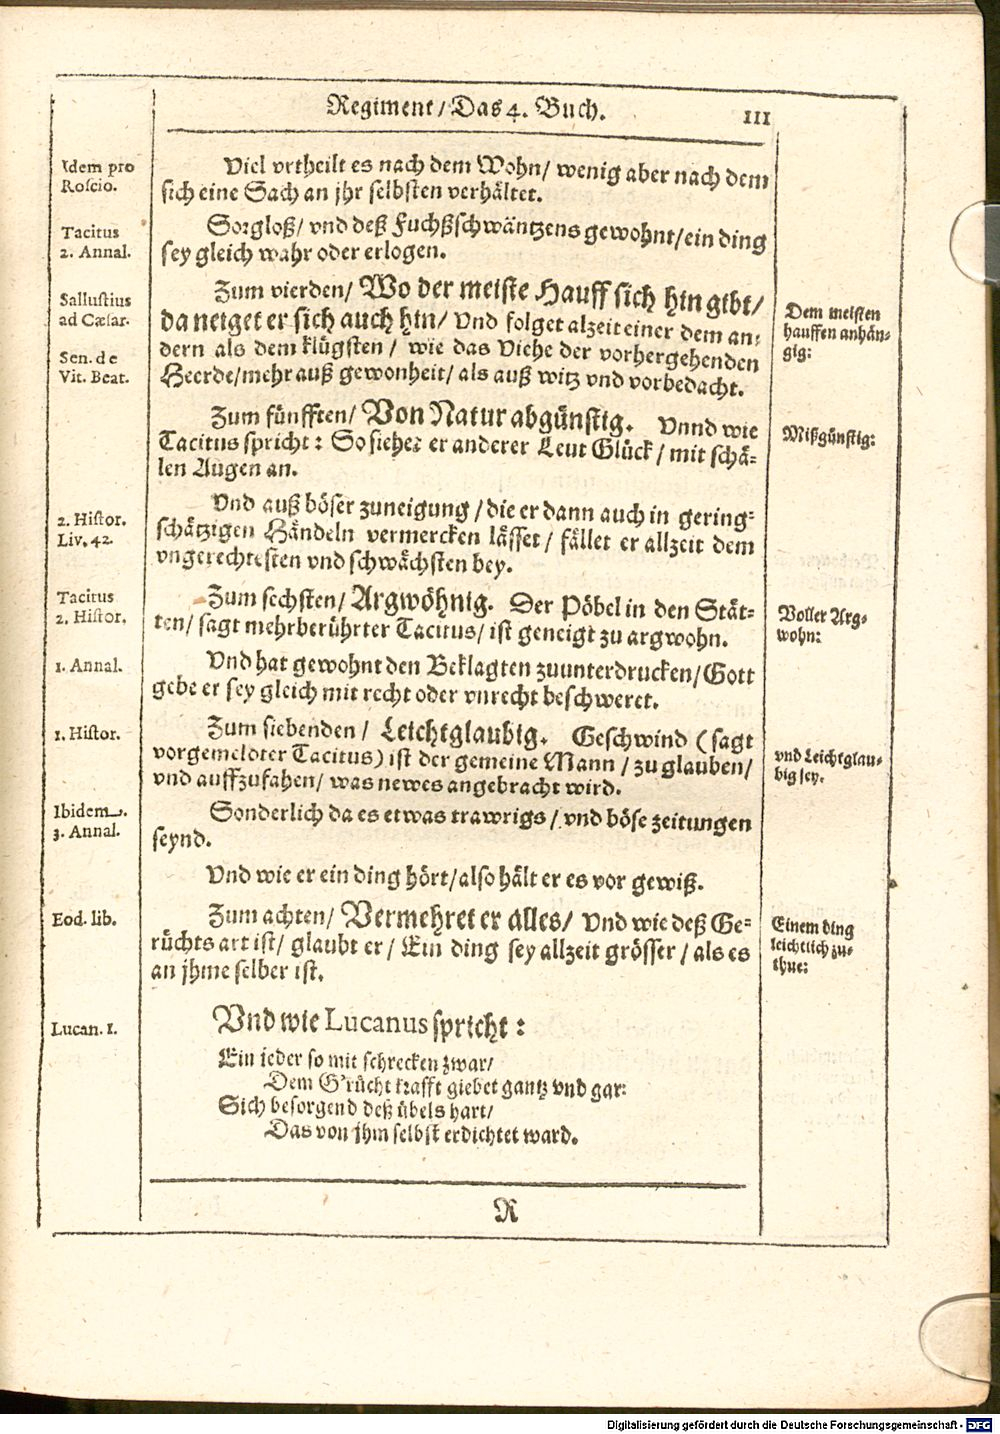 Regiment / Das 4. Buch.
111
Idem pro
Roscio.
Viel vrtheilt es nach dem Wohn / wenig aber nach dem
sich eine Sach an jhr selbsten verhältet.
Tacitus
2. Annal.
Sorgloß / vnd deß Fuchßschwäntzens gewohnt / ein ding
sey gleich wahr oder erlogen.
Sallustius
ad Cæsar.
Sen. de
Vit. Beat.
Zum vierden / Wo der meiste Hauff sich hin gibt /
da neiget er sich auch hin / Vnd folget alzeit einer dem an-
dern als dem klügsten / wie das Viehe der vorhergehenden
Heerde / mehr auß gewonheit / als auß witz vnd vorbedacht.
Dem meisten
hauffen anhän-
gig:
Zum fünfften / Von Natur abgünstig. Vnnd wie
Tacitus spricht : So siehet er anderer Leut Glück / mit schä-
len Augen an.
Mißgünstig:
2. Histor.
Liv. 42.
Vnd auß böser zuneigung / die er dann auch in gering-
schätzigen Händeln vermercken lässet / fället er allzeit dem
vngerechtesten vnd schwächsten bey.
Tacitus
2. Histor.
Zum sechsten / Argwöhnig. Der Pöbel in den Stät-
ten / sagt mehrberührter Tacitus / ist geneigt zu argwohn.
Voller Arg-
wohn:
1. Annal.
Vnd hat gewohnt den Beklagten zuunterdrucken / Gott
gebe er sey gleich mit recht oder vnrecht beschweret.
1. Histor.
Zum siebenden / Leichtglaubig. Geschwind ( sagt
vorgemeldter Tacitus) ist der gemeine Mann / zu glauben /
vnd auffzufahen / was newes angebracht wird.
vnd Leichtglau-
big sey.
Ibidem.
3. Annal.
Sonderlich da es etwas trawrigs / vnd böse zeitungen
seynd.
Vnd wie er ein ding hört / also hält er es vor gewiß.
Eod. lib.
Zum achten / Vermehret er alles / Vnd wie deß Ge-
rüchts art ist / glaubt er / Ein ding sey allzeit grösser / als es
an jhme selber ist.
Einem ding
leichtlich zu-
thue:
Lucan. 1.
Vnd wie Lucanus spricht :
Ein jeder so mit schrecken zwar /
Dem G'rücht krafft giebet gantz vnd gar:
Sich besorgend deß übels hart /
Das von jhm selbst erdichtet ward.
R
Digitalisierung gefördert durch die Deutsche Forschungsgemeinschaft - DFG